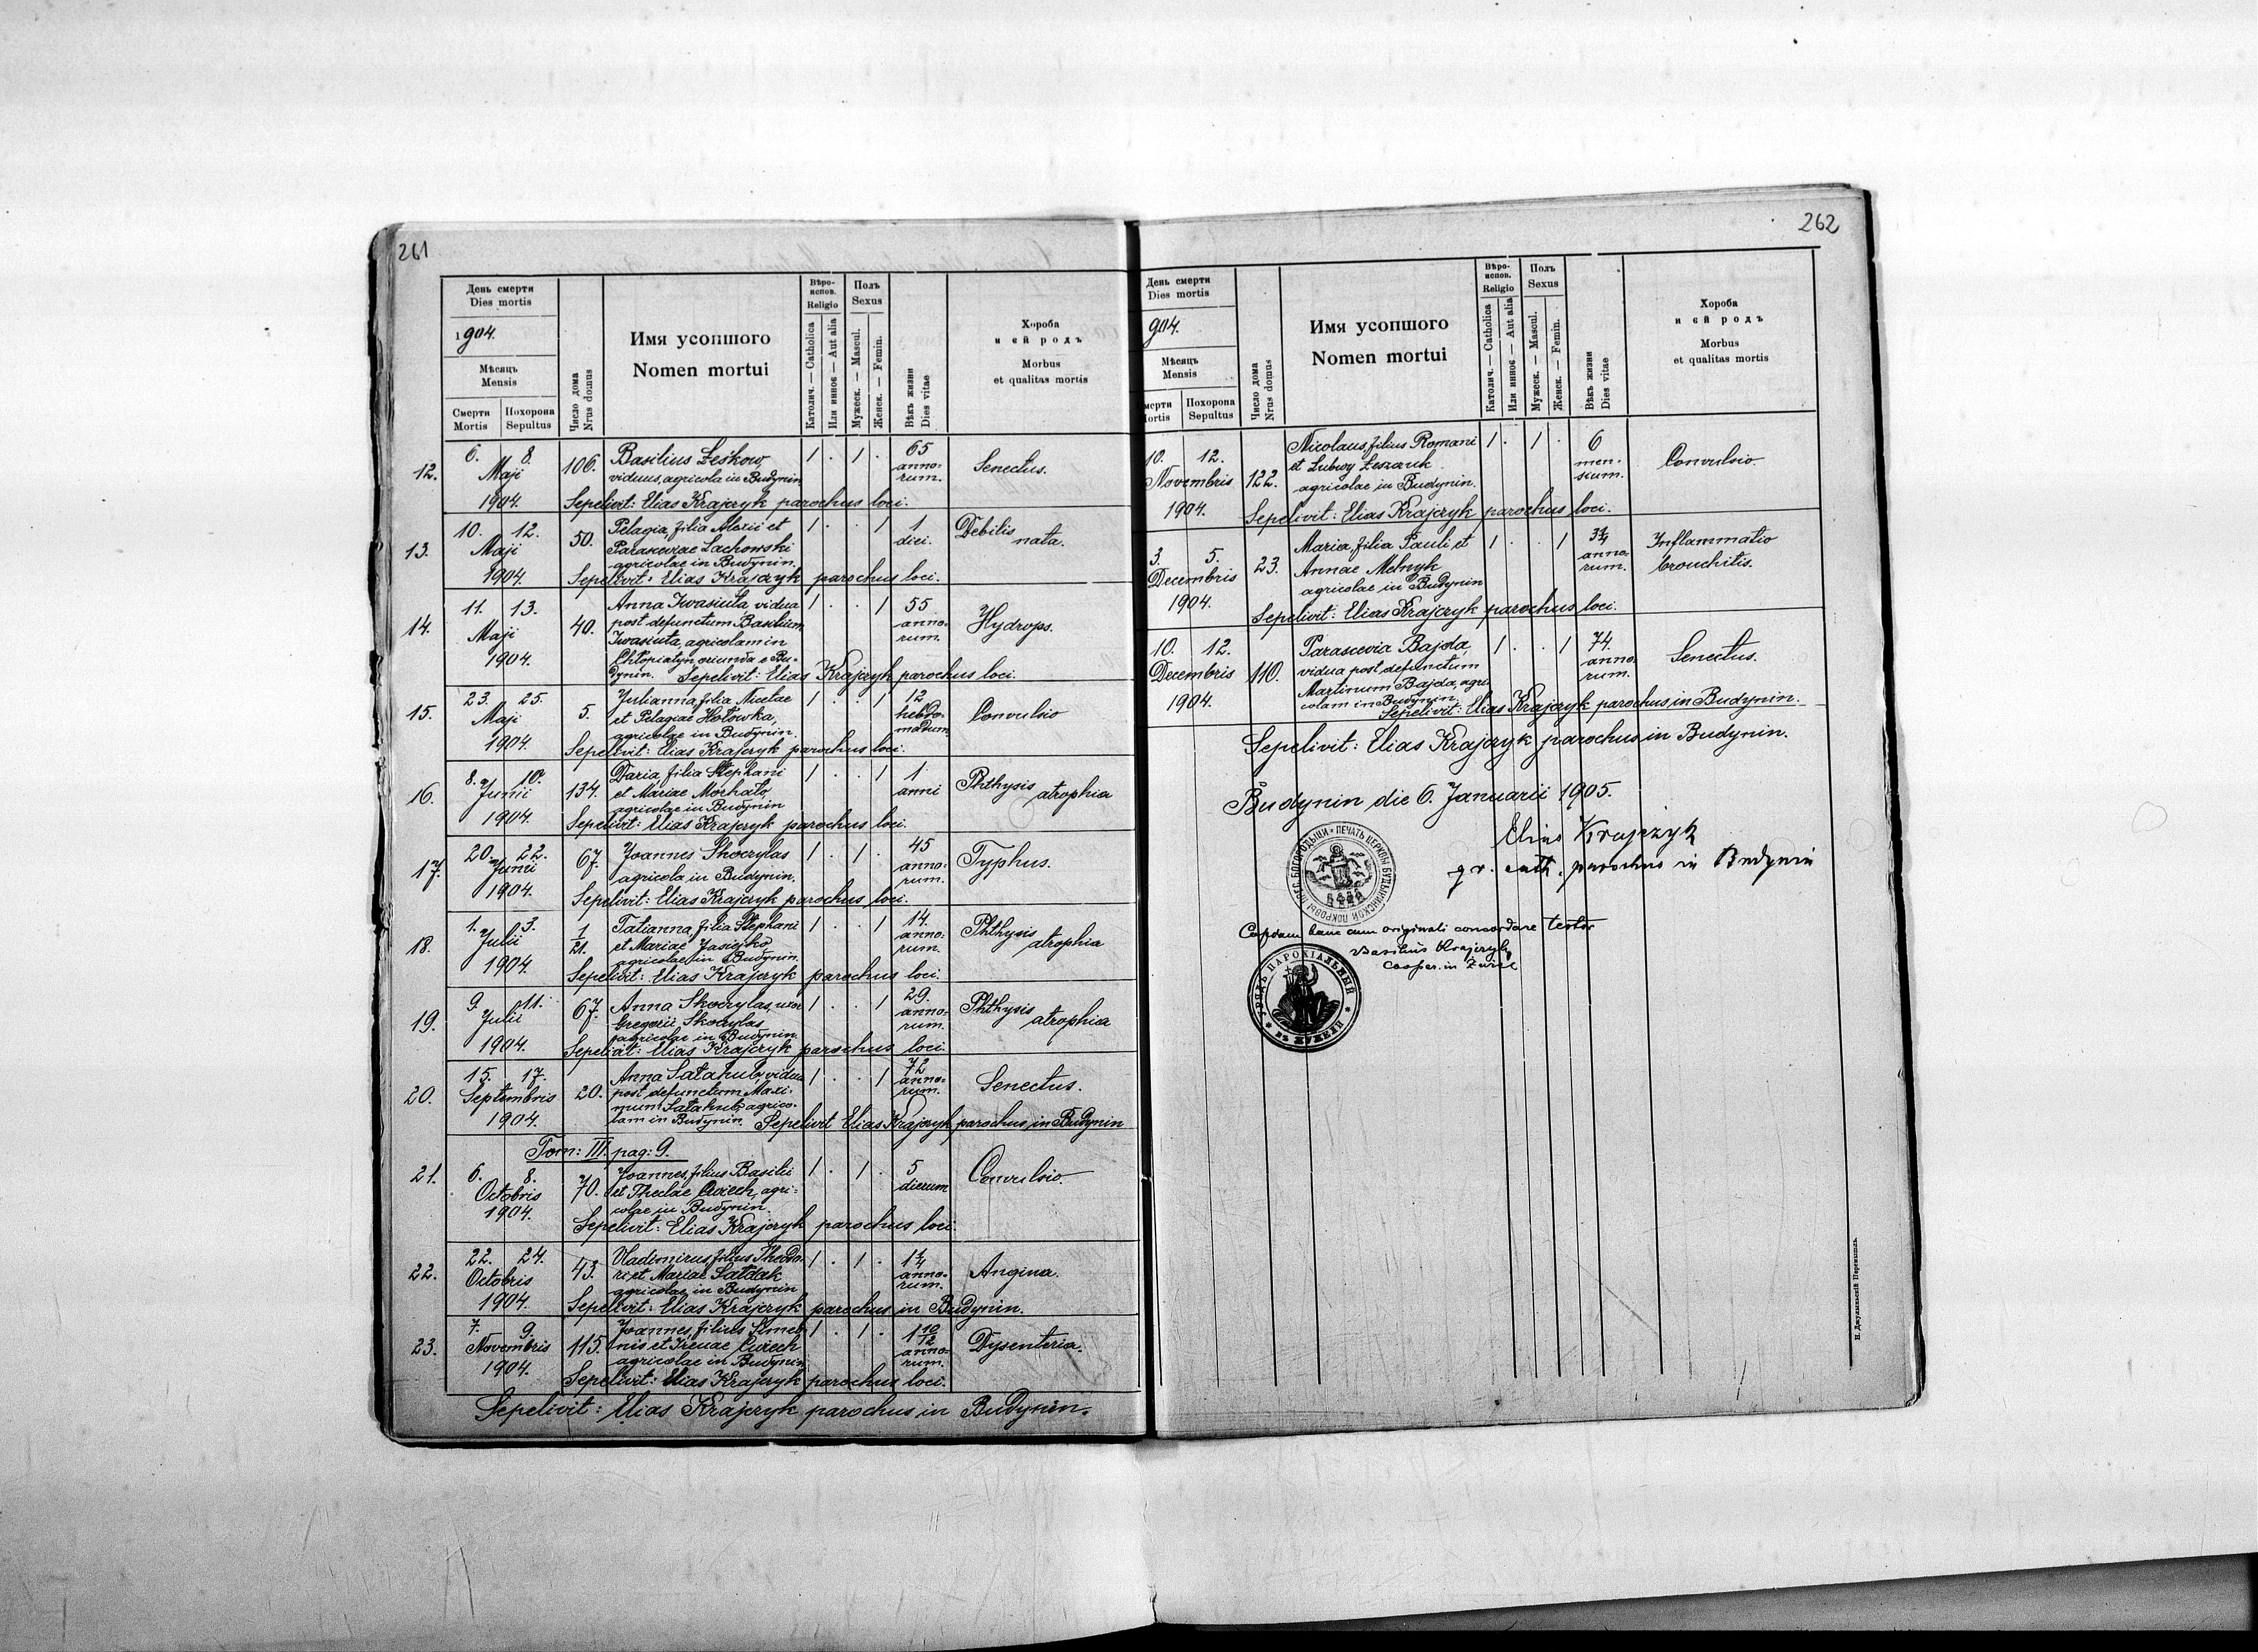 261
День смерти
Dies mortis
1904.
Мѣсяць
Mensis
Смерти
Mortis
Похорона
Sepultus
Число дома
Nrus domus
Имя усопшого
Nomen mortui
Вѣро-
испов.
Religio
Католич. — Catholica
Или инное — Aut alia
Полъ
Sexus
Мужеск. — Mascul.
Женск. — Femin.
Вѣкъ жизни
Dies vitae
Хороба
и ей родъ
Morbus
et qualitas mortis
12. 6. 8. Maji 1904. 106. Basilius Leśkow,
viduus, agricola in Budynin
1 . 1 . 65 annorum. Senectus.
Sepelivit: Elias Krajczyk parochus loci.
13. 10. 12. Maji 1904. 50. Pelagia, filia Alexii et
Parasceviae Lachowski
agricolae in Budynin.
1 . . 1 1 diei. Debilis nata.
Sepelivit: Elias Krajczyk parochus loci.
14. 11. 13. Maji 1904. 40. Anna Iwasiuta, vidua
post defunctum Basilium
Iwasiuta, agricolam in
Chłopiatyn, oriunda e Bu-
dynin. Sepelivit: Elias Krajczyk parochus loci.
1 . . 1 55 annorum. Hydrops.
15. 23. 25. Maji 1904. 5. Julianna, filia Nicetae
et Pelagiae Hołowka,
agricolae in Budynin.
1 . . 1 12 hebdomadum Convulsio
Sepelivit: Elias Krajczyk parochus loci.
16. 8. 10. Junii 1904. 134. Daria, filia Stephani
et Mariae Mochało,
agricolae in Budynin
1 . . 1 1 anni Phthysis atrophia
Sepelivit: Elias Krajczyk parochus loci.
17. 20. 22. Junii 1904. 67. Joannes Skoczylas
agricola in Budynin.
1 . 1 . 45 annorum. Typhus.
Sepelivit: Elias Krajczyk parochus loci.
18. 1. 3. Julii 1904. 1/21. Tatianna, filia Stephani
et Mariae Jasiojko,
agricolae in Budynin.
1 . . 1 14. annorum. Phthysis atrophia
Sepelivit: Elias Krajczyk parochus loci.
19. 9. 11. Julii 1904. 67. Anna Skoczylas, uxor
Gregorii Skoczylas
agricolae in Budynin.
1 . . 1 29. annorum. Phthysis atrophia
Sepelivit: Elias Krajczyk parochus loci.
20. 15. 17. Septembris 1904. 20. Anna Sałahub, vidua
post defunctum Maxi-
mum Sałahub, agrico-
lam in Budynin. Sepelivit Elias Krajczyk parochus in Budynin
1 . . 1 72 annorum. Senectus.
Tom: III. pag: 9.
21. 6. 8. Octobris 1904. 70. Joannes, filius Basilii
et Theclae Cwiech, agri-
colae in Budynin.
1 . 1 . 5 dierum Convulsio.
Sepelivit: Elias Krajczyk parochus loci.
22. 22. 24. Octobris 1904. 43. Vladimirus, filius Theodo-
ri et Mariae Sałdak
agricolae in Budynin
1 . 1 . annorum. Angina.
Sepelivit: Elias Krajczyk parochus in Budynin.
23. 7. 9. Novembris 1904. 115. Joannes, filius Simeo-
nis et Irenae Cwiech
agricolae in Budynin
1 . 1 . 1 10/12 annorum. Dysenteria.
Sepelivit: Elias Krajczyk parochus loci.
Sepelivit: Elias Krajczyk parochus in Budynin.
262
День смерти
Dies mortis
904.
Мѣсяць
Mensis
мерти
Mortis
Похорона
Sepultus
Число дома
Nrus domus
Имя усопшого
Nomen mortui
Вѣро-
испов.
Religio
Католич. — Catholica
Или инное — Aut alia
Полъ
Sexus
Мужеск. — Mascul.
Женск. — Femin.
Вѣкъ жизни
Dies vitae
Хороба
и ей родъ
Morbus
et qualitas mortis
10. 12. Novembris 1904. 122. Nicolaus, filius Romani
et Lubwy Leszczuk
agricolae in Budynin.
1 . 1 . 6 mensium. Convulsio.
Sepelivit: Elias Krajczyk parochus loci.
3. 5. Decembris 1904. 23. Maria, filia Pauli et
Annae Melnyk
agricolae in Budynin
1 . . 1 annorum. Inflammatio bronchitis.
Sepelivit: Elias Krajczyk parochus loci.
10. 12. Decembris 1904. 110. Parascevia Bajda,
vidua post defunctum
Martinum Bajda, agri-
colam in Budynin.
1 . . 1 74. annorum. Senectus.
Sepelivit: Elias Krajczyk parochus in Budynin.
Sepelivit: Elias Krajczyk parochus in Budynin.
Budynin die 6. Januarii 1905.
Elias Krajczyk
gr. cath. parochus in Budynin
ПЕЧАТЬ ЦЕРКВЫ БУДЫНИНСКОЙ ПОКРОВЫ ПРЕС. БОГОРОДЫЦИ
Copiam hanc cum originali concordare testor
Basilius Krajczyk
Cooper. in Żużel
УРЯДЪ ПАРОХІАЛЬНЫЙ ВЪ ЖУЖЕЛИ
Н. Джулынскій Перемышль.